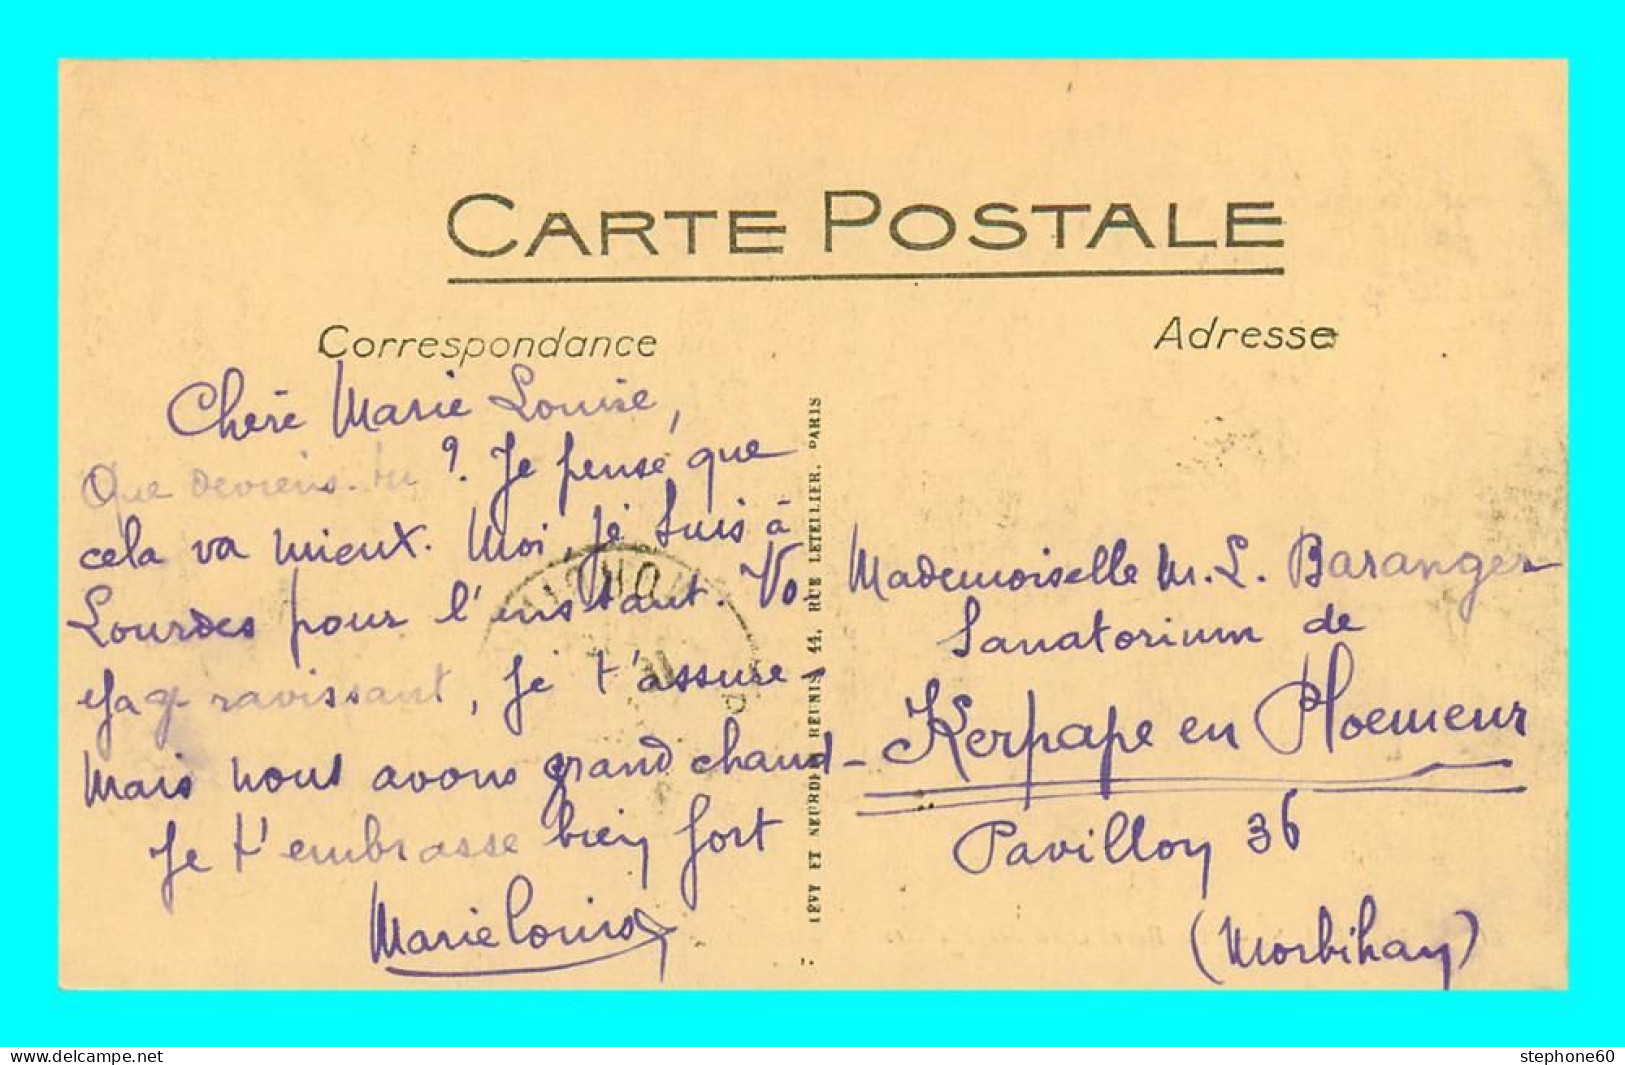 CARTE POSTALE
Correspondance
Adresse
Chère Marie Louise,
Que deviens-tu ? Je pense que
cela va mieux. Moi, je suis à
Lourdes pour l'instant.
ravissant, je t'assure -
Mais nous avons grand chaud -
Je t'embrasse bien fort
Marie Louise
LÉVY ET NEURDEIN RÉUNIS, 44, RUE LETELLIER, PARIS
Mademoiselle M. L. Baranger
Sanatorium de
Kerpape en Ploemeur
Pavillon 36
(Morbihan)
delcampe.net
stephone60